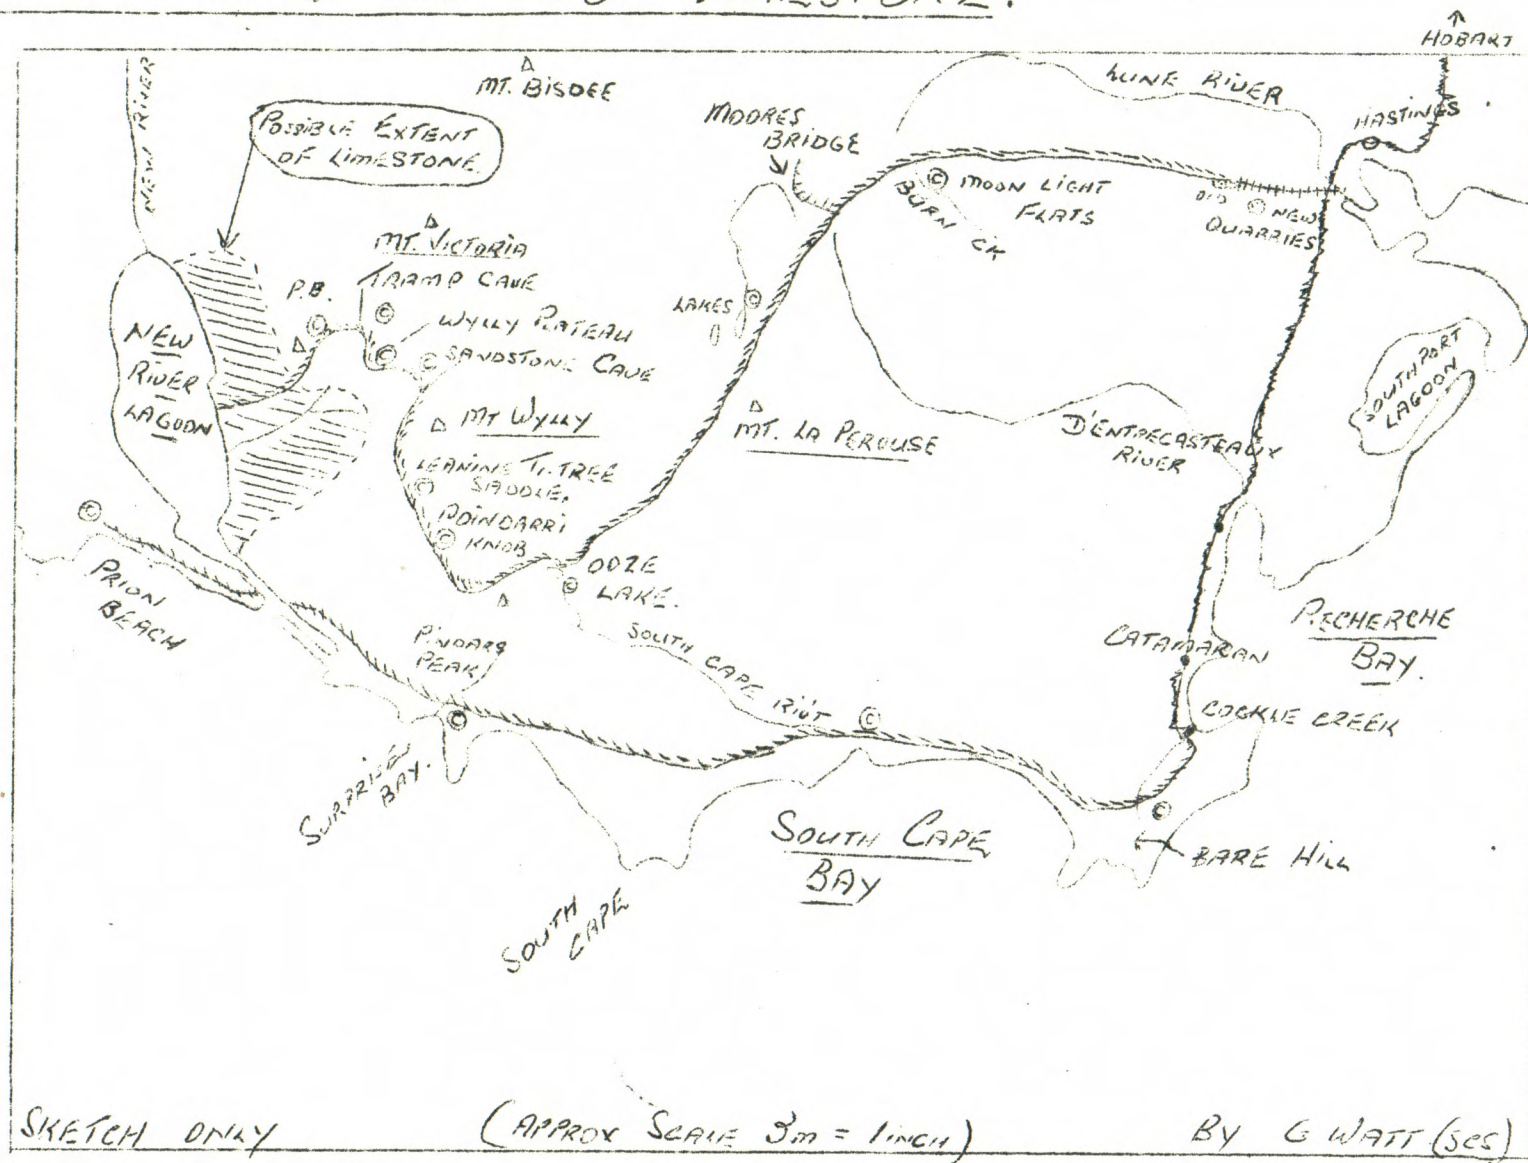 ↑
HOBART
NEW RIVER
MT. BISDEE
LUNE RIVER
HASTINGS
POSSIBLE EXTENT
OF LIMESTONE
MOORES
BRIDGE
© MOON LIGHT
FLATS
BURN CK
OLD
© NEW
QUARRIES
MT. VICTORIA
TRAMP CAVE
P.B.
©
©
WYLLY PLATEAU
© SANDSTONE CAVE
LAKES ©
NEW
RIVER
LAGOON
SOUTHPORT
LAGOON
MT WYLLY
MT. LA PEROUSE
D'ENTRECASTEAUX
RIVER
LEANING TI-TREE
© SADDLE.
POINDARRI
© KNOB
©
PRION
BEACH
OOZE
© LAKE.
PINDARS
PEAK
SOUTH CAPE RIUT
©
©
RECHERCHE
BAY.
CATAMARAN
COCKLE CREEK
SURPRISE
BAY.
SOUTH CAPE
BAY
©
BARE HILL
SOUTH
CAPE
SKETCH ONLY
(APPROX SCALE 3m = 1 INCH)
BY G WATT (SCS)